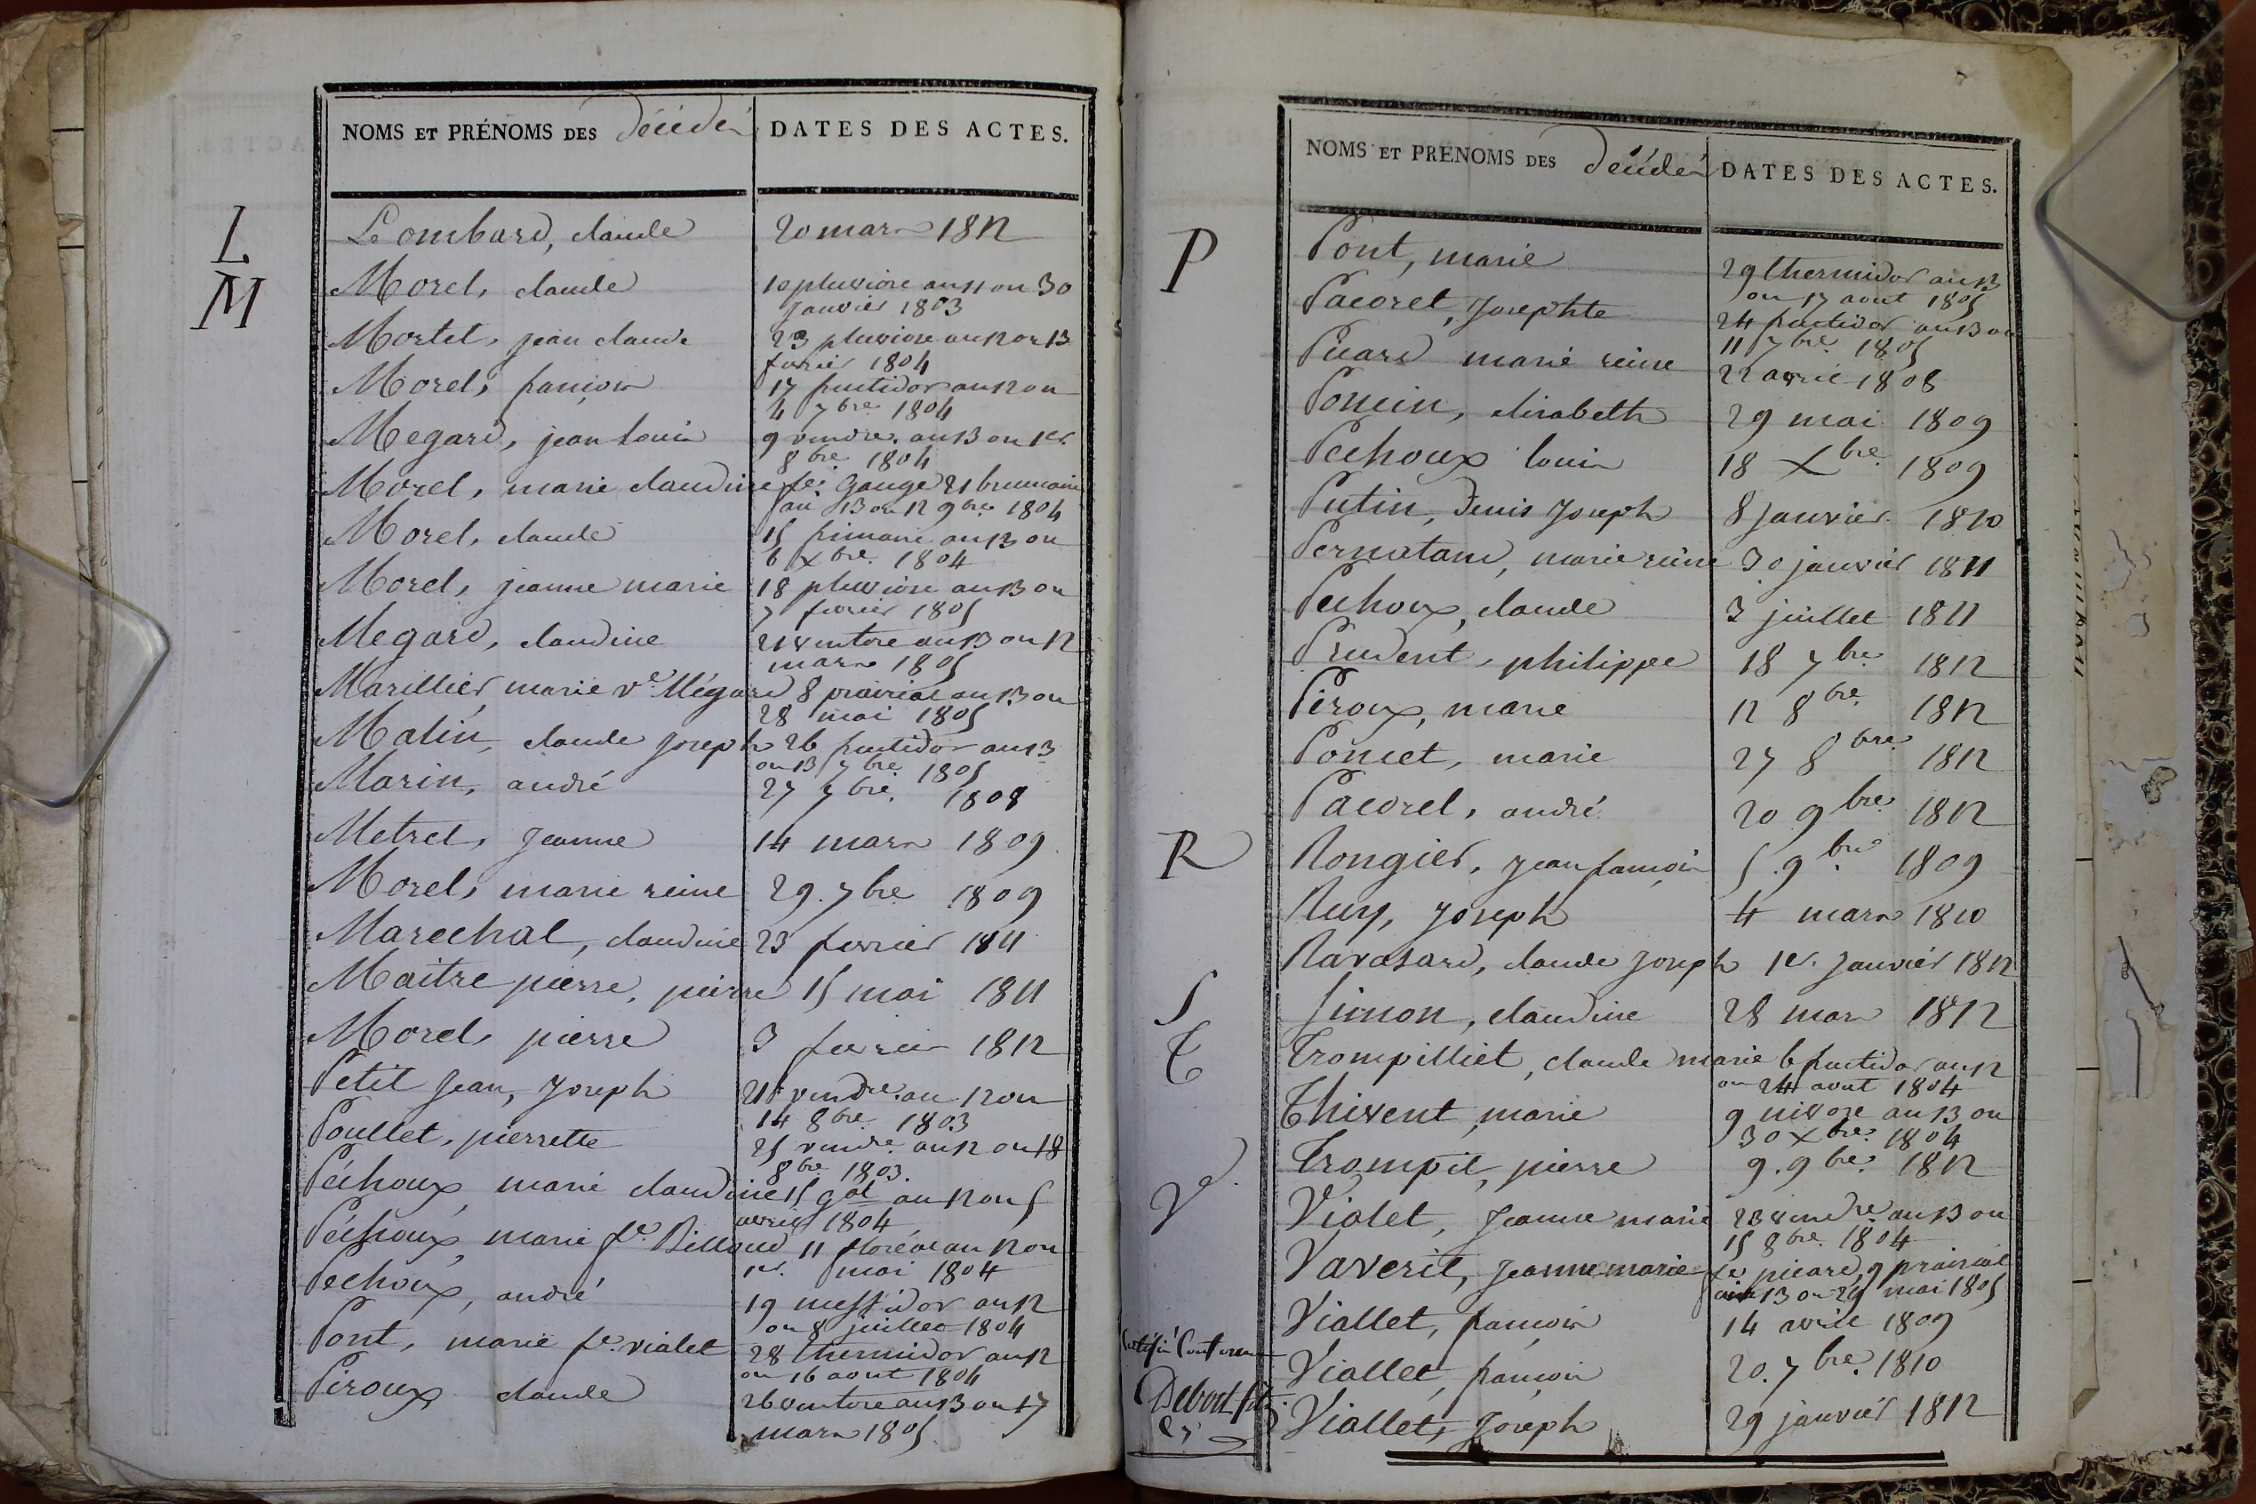 NOMS ET PRÉNOMS DES décédés DATES DES ACTES.
L
Lombard, claude 20 mars 1812
M
Morel, claude 10 pluviose an 11 ou 30
janvier 1803
Mortel, jean claude 23 pluviose an 12 ou 13
fevrier 1804
Morel, françois 17 fructidor an 12 ou
4 7bre 1804
Megard, jean louis 9 vendre. an 13 ou 1er
8bre 1804
Morel, marie claudine fe. Gauge 21 brumaire
an 13 ou 12 9bre 1804
Morel, claude 15 frimaire an 13 ou
6 Xbre 1804
Morel, jeanne marie 18 pluviose an 13 ou
7 fevrier 1805
Megard, claudine 21 ventose an 13 ou 12
mars 1805
Marillier, marie ve. Mégard 8 prairial an 13 ou
28 mai 1805
Matin, claude joseph 26 fructidor an 13
ou 13 7bre 1805
Marin, andré 27 7bre. 1808
Metrel, Jeanne 14 mars 1809
Morel, marie reine 29. 7bre 1809
Marechal, claudine 23 fevrier 1811
Maitre pierre, pierre 15 mai 1811
Morel, pierre 3 fevrier 1812
Petit Jean, Joseph 21 vendre. an 12 ou
14 8bre 1803
Poullet, pierrette 25 vendre. an 12 ou 18
8bre 1803.
Péchoux, marie claudine 15 gal an 12 ou 5
avril 1804
Péchoux, marie fe. Billoud 11 floréal an 12 ou
1er. mai 1804
Pechoux, andré 19 messidor an 12
ou 8 juillet 1804
Pont, marie fe. vialet 28 thermidor an 12
ou 16 aout 1804
Piroux claude 26 ventose an 13 ou 17
mars 1805
NOMS ET PRÉNOMS DES décédés DATES DES ACTES.
P
Pont, marie 29 thermidor an 13
ou 17 aout 1805
Pacoret, Josephte 24 fructidor an 13 ou
11 7bre 1805
Picard marie reine 22 avril 1808
Poncin, elisabeth 29 mai 1809
Pechoux louis 18 Xbre 1809
Putin, Denis Joseph 8 janvier 1810
Pernatand, marie reine 30 janvier 1811
Pechoux, claude 3 juillet 1811
Prudent, philippe 18 7bre 1812
Piroux, marie 12 8bre 1812
Poncet, marie 27 8bre 1812
Pacorel, andré 20 9bre 1812
R
Rongier, Jean françois 5. 9bre 1809
Ruy, Joseph 4 mars 1810
Ravasard, claude Joseph 1er. Janvier 1812
S
Simon, claudine 28 mars 1812
T
Trompilliet, claude marie 6 fructidor an 12
ou 24 aout 1804
Thivent, marie 9 nivose an 13 ou
30 Xbre. 1804
Trompil, pierre 9. 9bre. 1812
V
Vialet, Jeanne marie 23 vendre an 13 ou
15 8bre. 1804
Vaveril, Jeanne marie fe. picard, 9 prairial
an 13 ou 29 mai 1805
Viallet, françois 14 avril 1809
Viallet, françois 20. 7bre. 1810
Viallet, Joseph 29 janvier 1812
Certifié Conforme